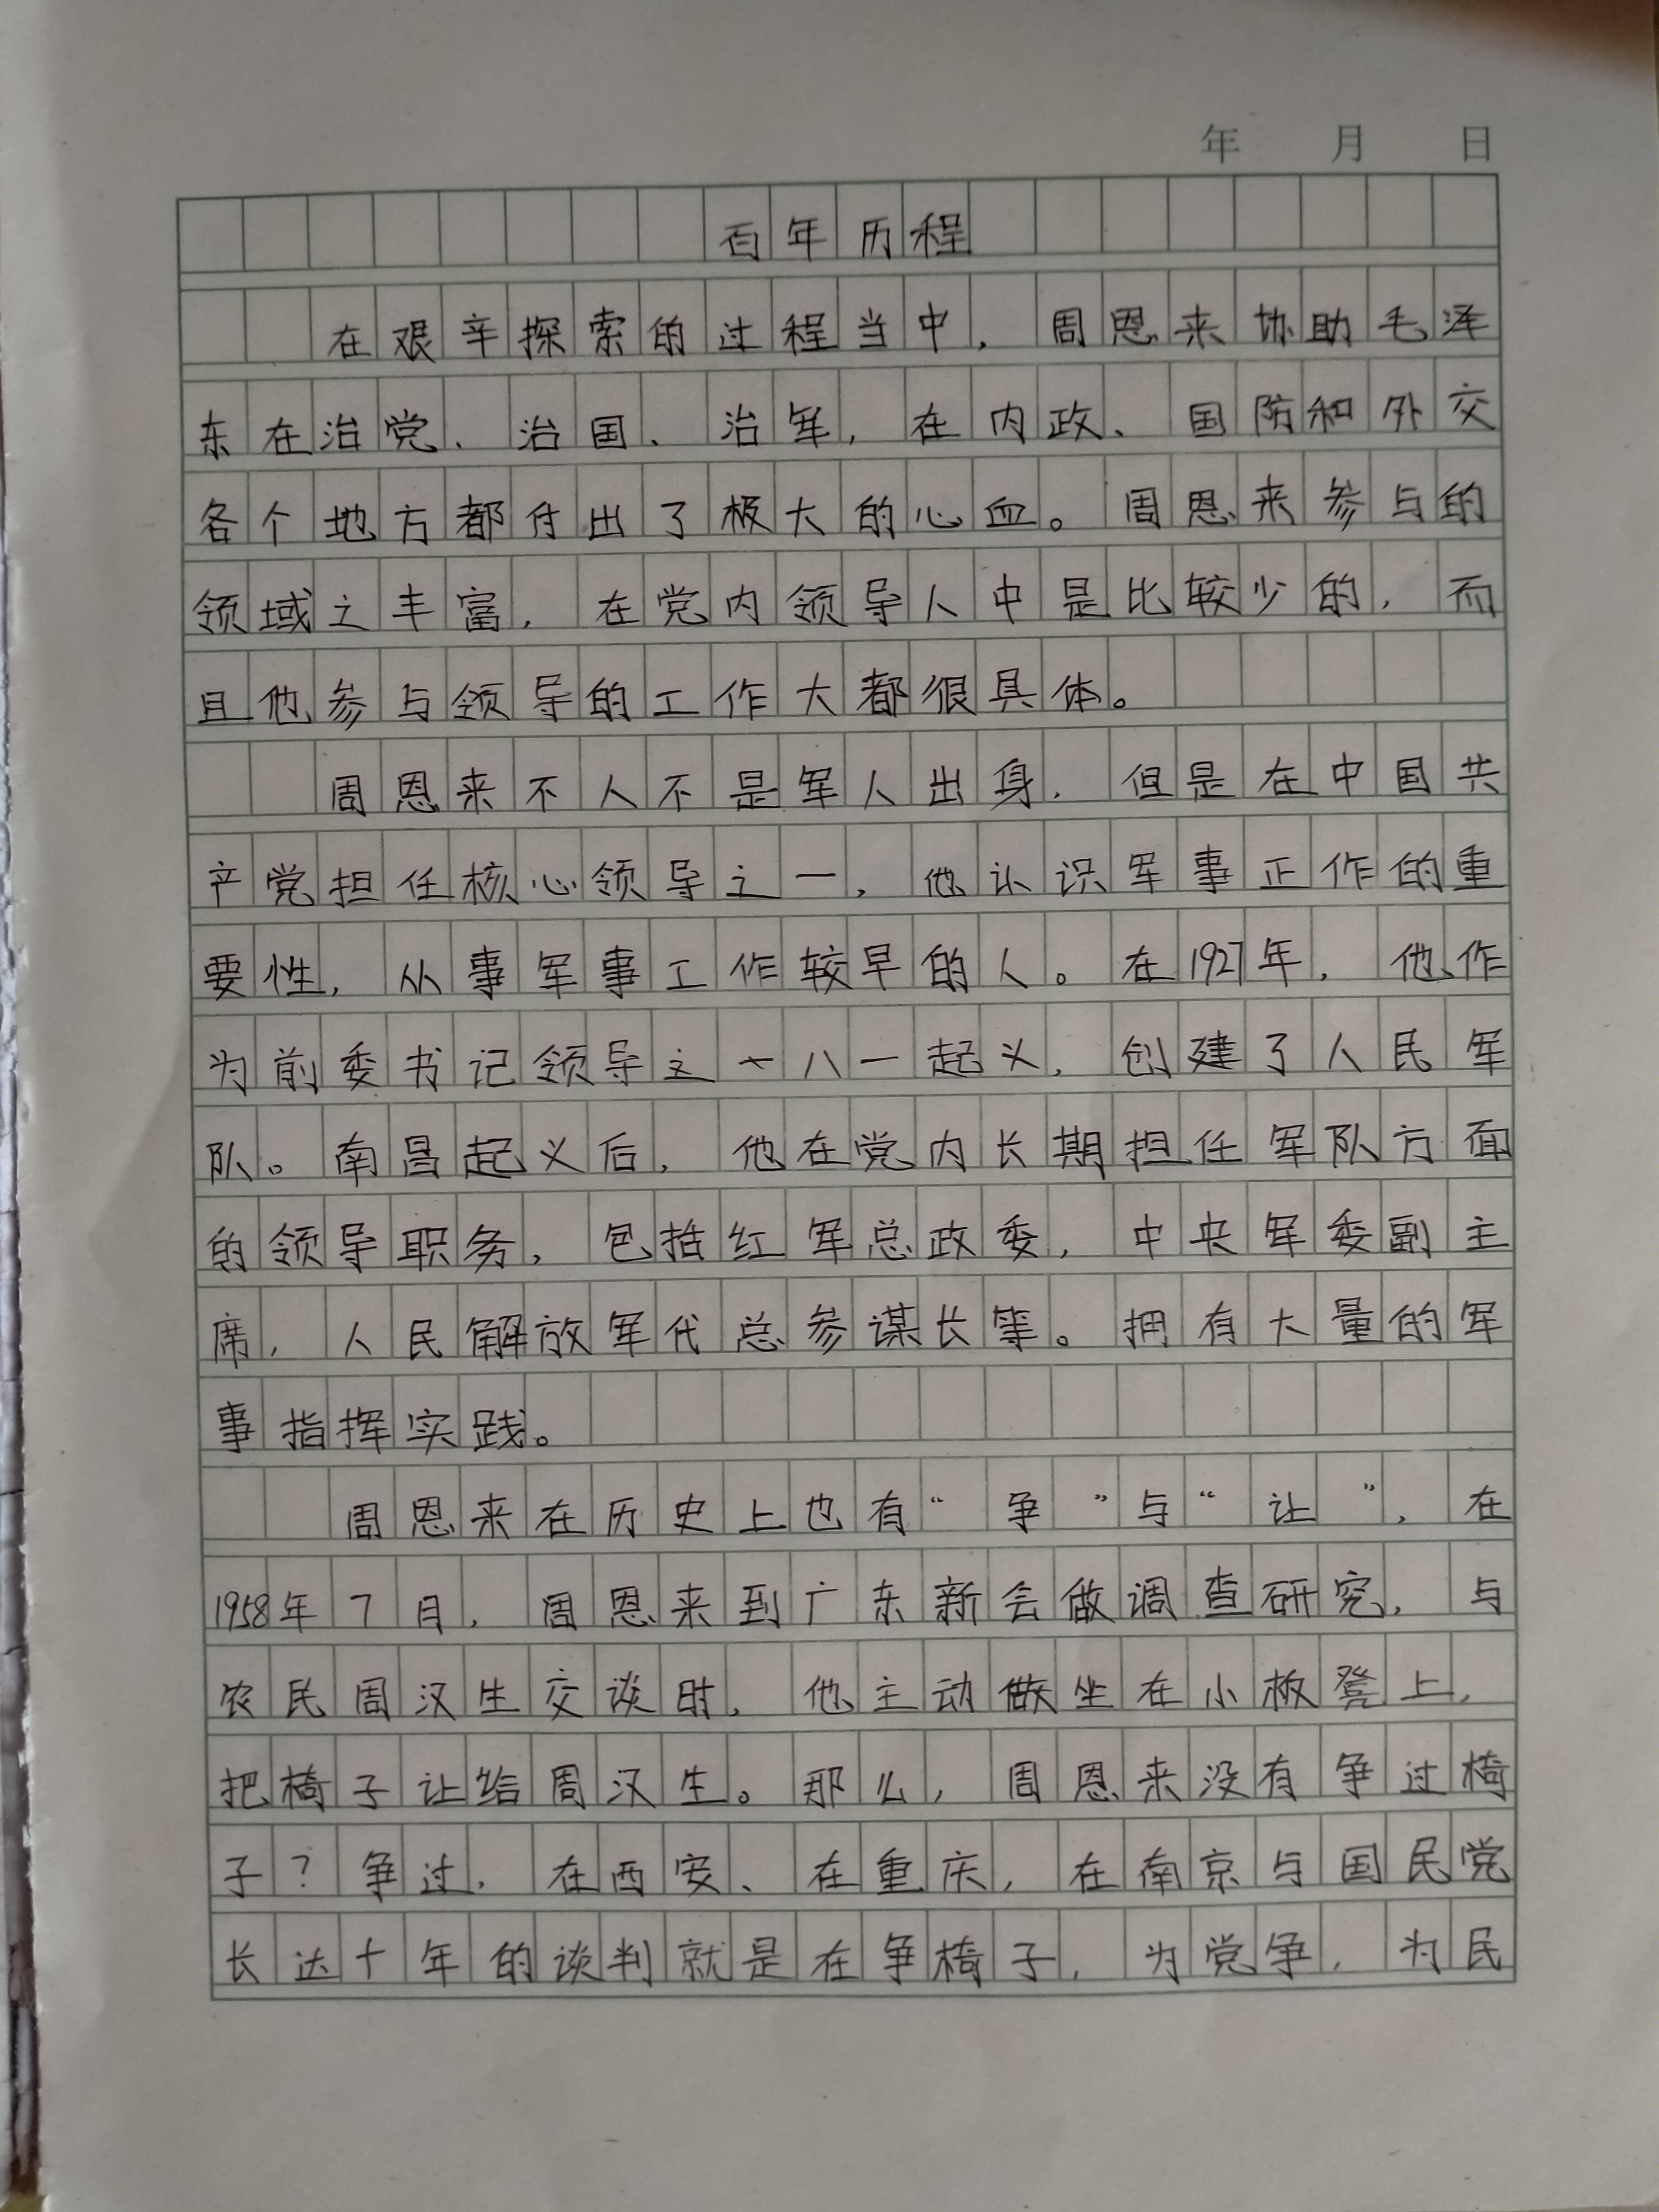 年 月 日
百年历程
在艰辛探索的过程当中，周恩来协助毛泽
东在治党、治国、治军，在内政、国防和外交
各个地方都付出了极大的心血。周恩来参与的
领域之丰富，在党内领导人中是比较少的，而
且他参与领导的工作大都很具体。
周恩来不人不是军人出身，但是在中国共
产党担任核心领导之一，他认识军事正作的重
要性，从事军事工作较早的人。在1927年，他作
为前委书记领导之一八一起义，创建了人民军
队。南昌起义后，他在党内长期担任军队方面
的领导职务，包括红军总政委，中央军委副主
席，人民解放军代总参谋长等。拥有大量的军
事指挥实践。
周恩来在历史上也有“争”与“让”，在
1958年7月，周恩来到广东新会做调查研究，与
农民周汉生交谈时，他主动做坐在小板凳上，
把椅子让给周汉生。那么，周恩来没有争过椅
子？争过，在西安、在重庆，在南京与国民党
长达十年的谈判就是在争椅子，为党争，为民